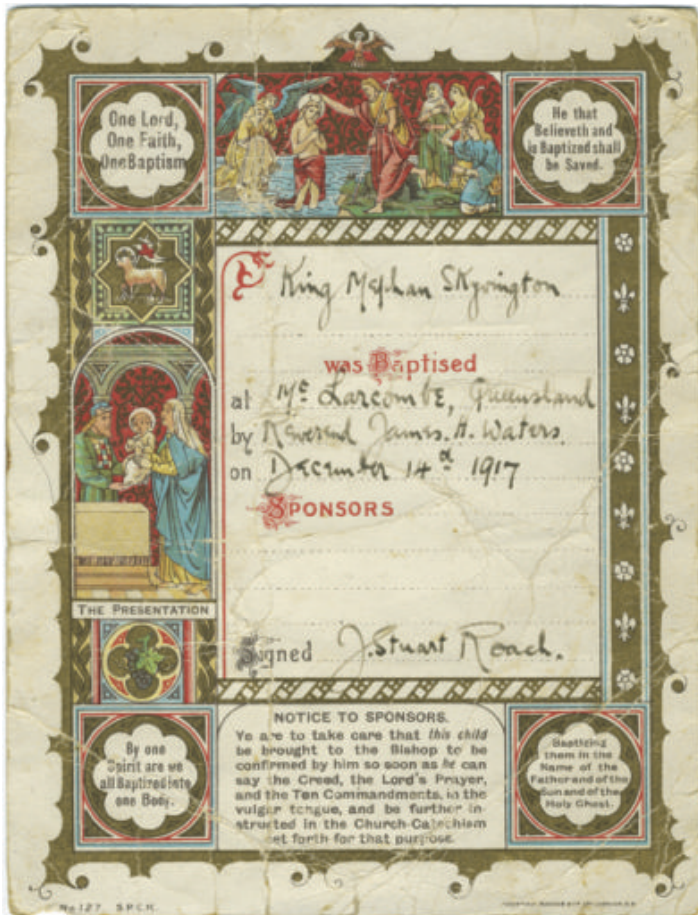 One Lord,
One Faith,
One Baptism
He that
Believeth and
is Baptized shall
be Saved.
King Mephan Skyrington
was Baptised
at Mt Larcombe, Queensland
by Reverend James. A. Waters.
on December 14th 1917
SPONSORS
THE PRESENTATION
Signed J. Stuart Roach.
By one
Spirit are we
all Baptized into
one Body.
NOTICE TO SPONSORS.
Ye are to take care that this child
be brought to the Bishop to be
confirmed by him so soon as he can
say the Creed, the Lord's Prayer,
and the Ten Commandments, in the
vulgar tongue, and be further in-
structed in the Church-Catechism
set forth for that purpose.
Baptizing
them in the
Name of the
Father and of the
Son and of the
Holy Ghost.
No 127 S.P.C.K.